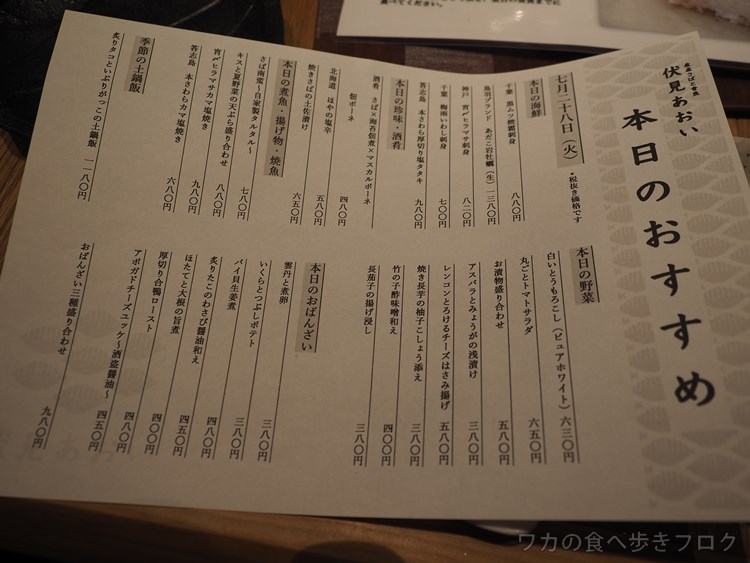 産直さばと日本食
伏見あおい
本日のおすすめ
七月二十八日(火)
*税抜き価格です
本日の海鮮
千葉 黒ムツ焼霜刺身 八八〇円
鳥羽ブランド あだこ岩牡蠣(生) 一三八〇円
神戸 宵〆ヒラマサ刺身 八二〇円
千葉 梅雨いわし刺身 七〇〇円
答志島 本さわら厚切り塩タタキ 九八〇円
本日の珍味・酒肴
酒肴 さば×海苔佃煮×マスカルポーネ
佃ポーネ 四八〇円
北海道 ほやの塩辛 五八〇円
焼きさばの土佐漬け 六五〇円
本日の煮魚・揚げ物・焼魚
さば南蛮~自家製タルタル~ 七八〇円
キスと夏野菜の天ぷら盛り合わせ 八八〇円
宵〆ヒラマサカマ塩焼き 九八〇円
答志島 本さわらカマ塩焼き 六八〇円
季節の土鍋飯
炙りタコといぶりがっこの土鍋飯 一一八〇円
本日の野菜
白いとうもろこし(ピュアホワイト) 六三〇円
丸ごとトマトサラダ 六五〇円
お漬物盛り合わせ 五八〇円
アスパラとみょうがの浅漬け 三八〇円
レンコンとろけるチーズはさみ揚げ 五八〇円
焼き長芋の柚子こしょう添え 三八〇円
竹の子酢味噌和え 四〇〇円
長茄子の揚げ浸し 三八〇円
本日のおばんざい
雲丹と煮卵
いくらとつぶしポテト 三八〇円
バイ貝生姜煮 三八〇円
炙りたこのわさび醤油和え 四八〇円
ほたてと大根の旨煮 四五〇円
厚切り合鴨ロースト 四〇〇円
アボガドチーズユッケ~酒盗醤油~ 四八〇円
四五〇円
おばんざい三種盛り合わせ 九八〇円
食べてください。
ワカの食べ歩きブログ